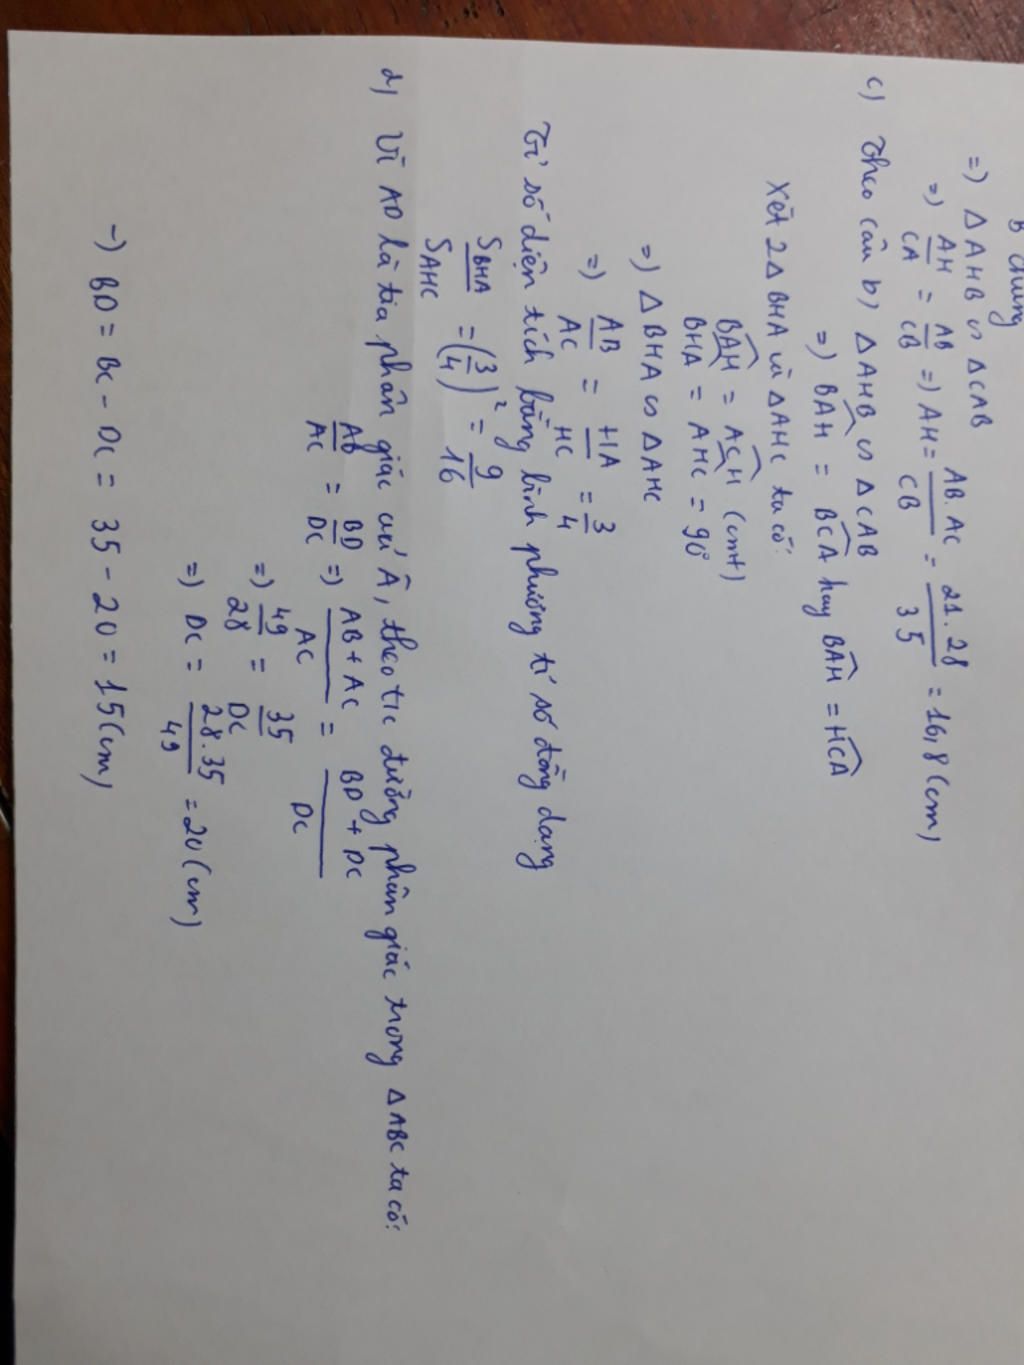 B chung
=) Δ AHB ∽ Δ CAB
=) AH/CA = AB/CB =) AH = AB.AC/CB = 21.28/35 = 16,8 (cm)
c) Theo câu b) Δ AHB ∽ Δ CAB
=) BAH^ = BCA^ hay BAH^ = HCA^
Xét 2Δ BHA và Δ AHC ta có:
BAH^ = ACH^ (cmt)
BHA^ = AHC^ = 90°
=) Δ BHA ∽ Δ AHC
=) AB/AC = HA/HC = 3/4
Tỉ số diện tích bằng bình phương tỉ số đồng dạng
S BHA/S AHC = (3/4)² = 9/16
d) Vì AD là tia phân giác của Â, theo t/c đường phân giác trong Δ ABC ta có:
AB/AC = BD/DC =) AB + AC/AC = BD + DC/DC
=) 49/28 = 35/DC
=) DC = 28.35/49 = 20 (cm)
-) BD = BC - DC = 35 - 20 = 15 (cm)